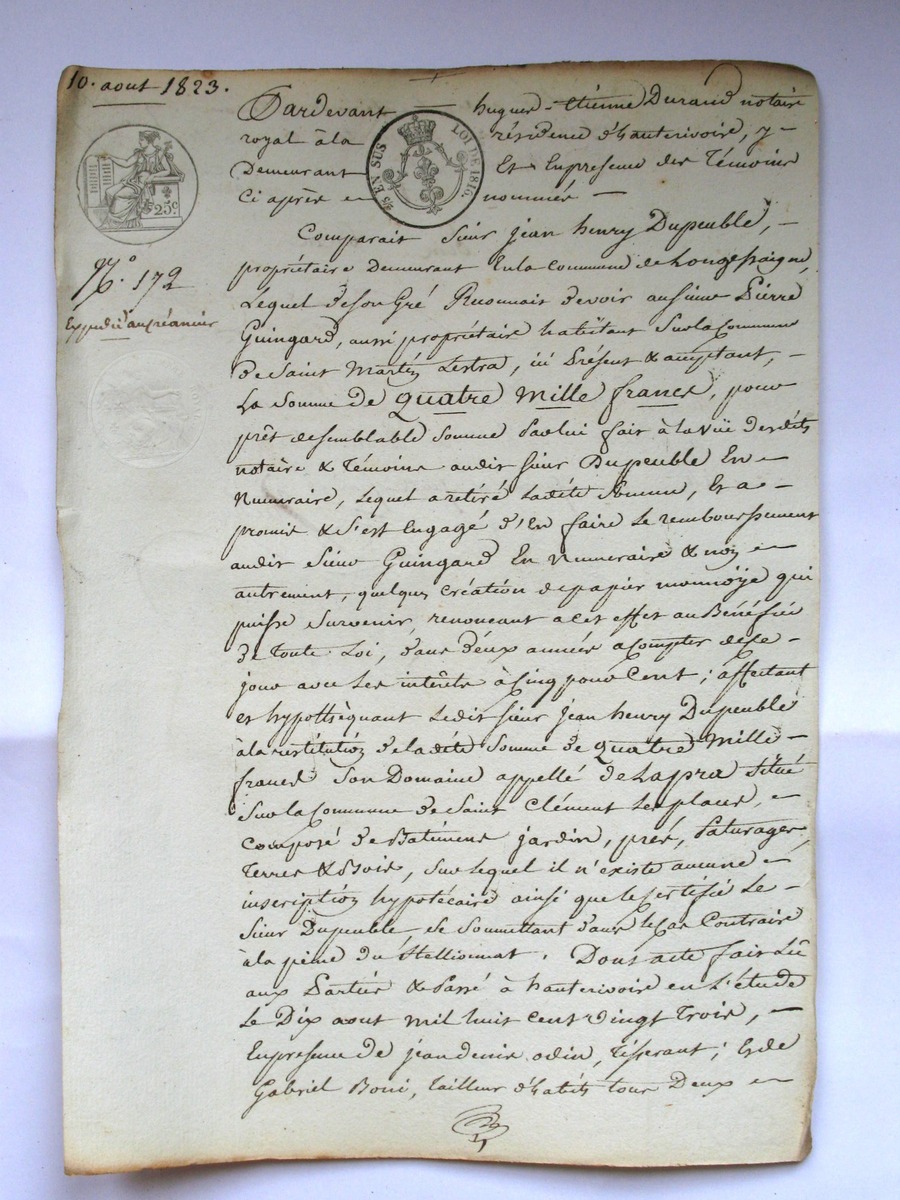 10. aout 1823.
25 c
¼ EN SUS LOI DE 1816.
N.° 172
Expedié au créancier
Pardevant hugues - etienne Durand notaire
royal à la résidence d'hauterivoire, y -
Demeurant Et En presence des Témoins
Ci après - nommés -
Comparait sieur jean henry Dupeuble, -
propriétaire Demeurant En la Commune de Longessaigne,
Lequel de son Gré Reconnait devoir au sieur Pierre
Guingard, aussi propriétaire habitant sur la Commune
de Saint Martin Lestra, ici Présent & acceptant, -
La Somme de quatre mille francs, pour
prêt de semblable somme Par lui fait à la vüe desdits
notaire & Témoins audit sieur Dupeuble En -
Numeraire, Lequel a retiré Ladite somme, Et a -
promis & s'est Engagé d'En faire Le remboursement
audit Sieur Guingard En Numeraire & non -
autrement, quelque création de papier monnoÿe qui
puisse Survenir, renoncant a cet effet au Bénéfice
de Toute Loi, dans deux années a Compter de ce -
jour avec Les intérêts à Cinq pour Cent ; affectant
et hypothéquant Ledit sieur jean henry Dupeuble
à la restitution de ladite somme de quatre mille -
francs Son Domaine appellé de Lapra Situé
Sur la Commune de Saint Clément Les places, -
Composé de Batimens jardin, prés, Paturages,
Terres & Bois, Sur lequel il n'existe aucune -
inscription hypotécaire ainsi que le Certifie Le -
Sieur Dupeuble, se Soumettant dans le Cas Contraire
à la peine du Stellionnat. Dont acte fait Lû
aux Parties & Passé à hauterivoire en L'étude
Le Dix aout mil huit cent vingt Trois, -
En presence de jean denis odin, Tisserant ; Et de
Gabriel Boni, Tailleur d'habits tous Deux -